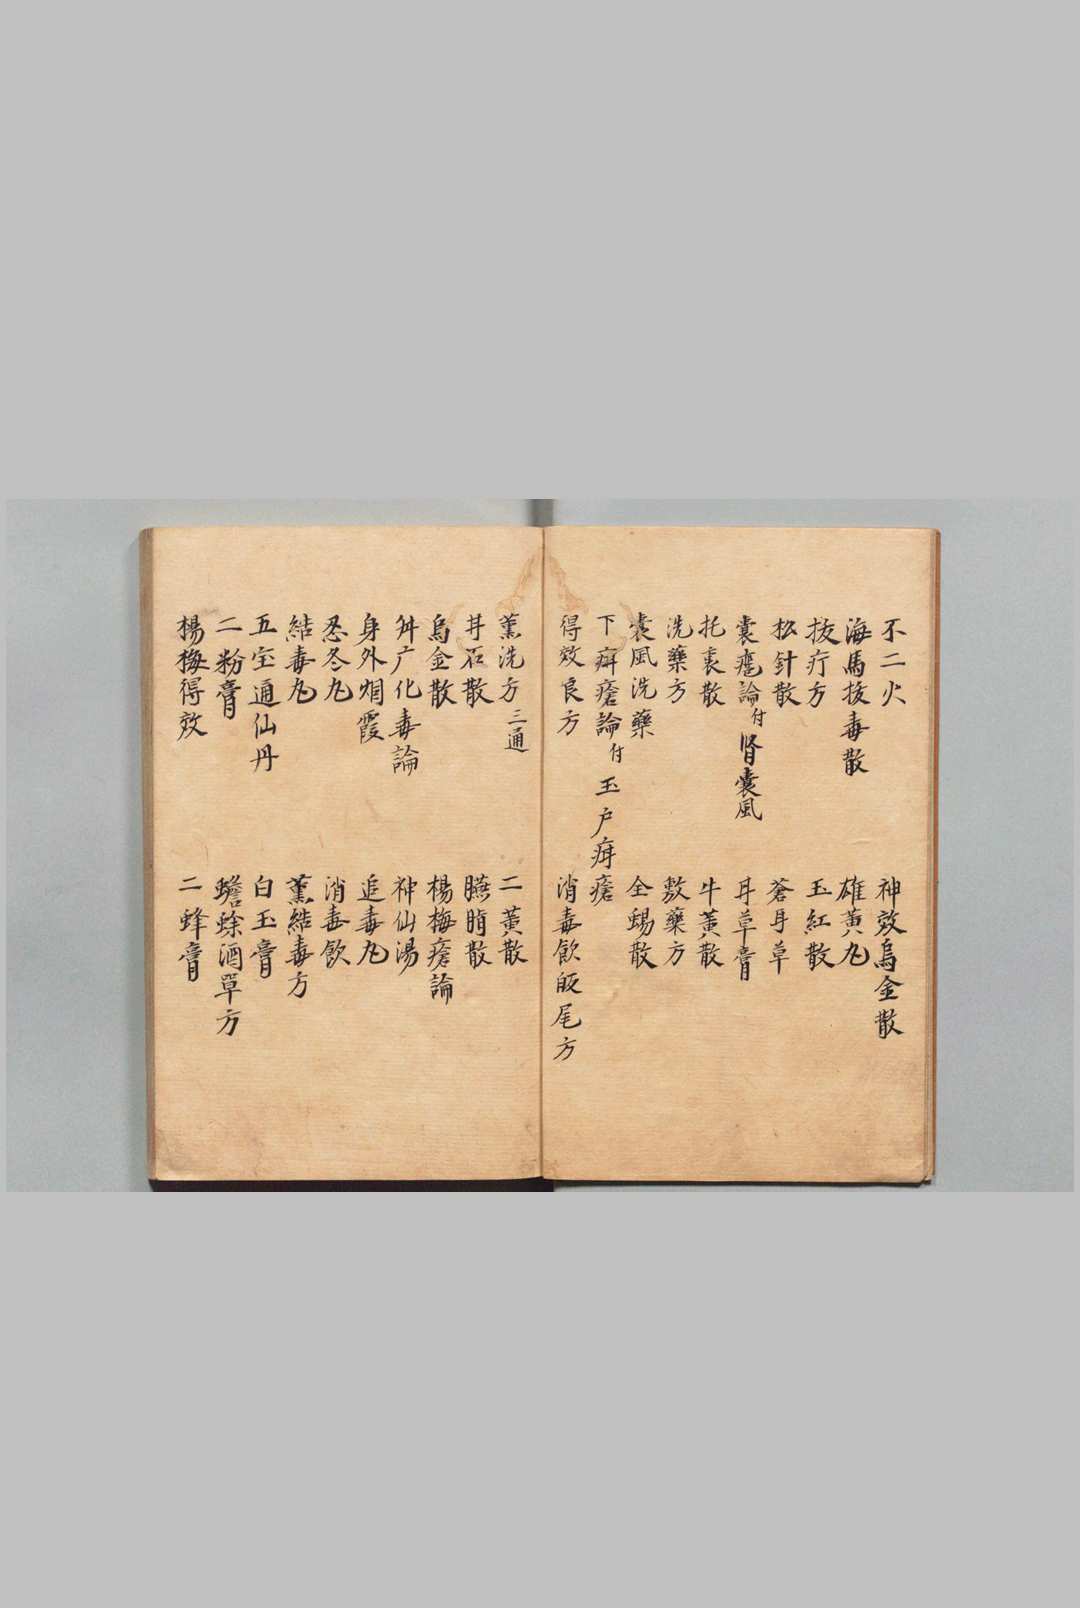 不二火 神效烏金散
海馬拔毒散 雄黄丸
拔疔方 玉紅散
松針散 蒼耳草
囊癰論付腎囊風 耳草膏
托裏散 牛黄散
洗藥方 敷藥方
囊風洗藥 全蝎散
下疳瘡論付玉户疳瘡
得效良方 消毒飲皈尾方
薰洗方三通 二黄散
井石散 臙脂散
烏金散 楊梅瘡論
舛疒化毒論 神仙湯
身外烟霞 追毒丸
忍冬丸 消毒飲
結毒丸 薰結毒方
五宝通仙丹 白玉膏
二粉膏 蟾蜍酒單方
楊梅得效 二蜂膏